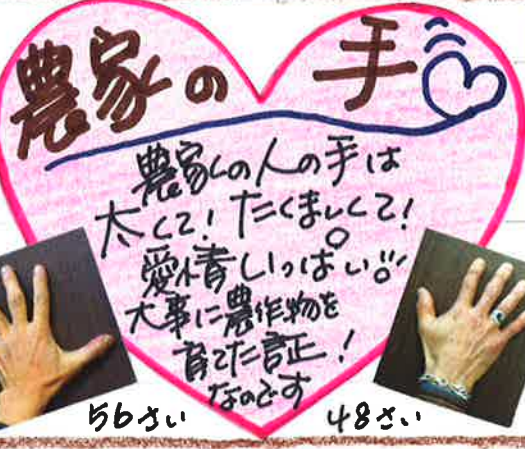 農家の手
農家の人の手は
太くて!たくましくて!
愛情いっぱい!!
大事に農作物を
育てた証!
なのです
56さい
48さい